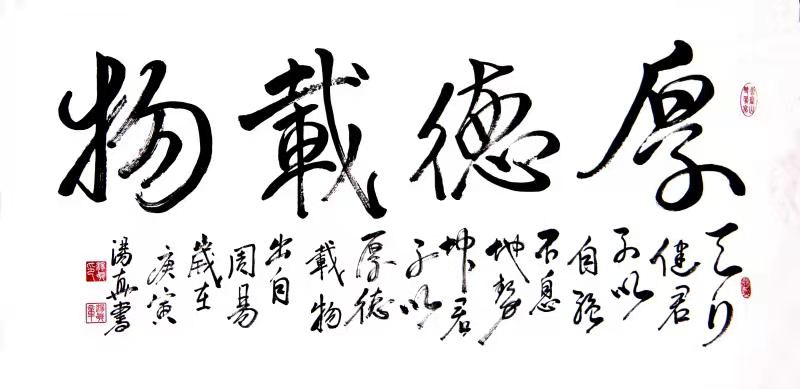 厚德載物
天行
健君
子以
自强
不息
地势
坤君
子以
厚德
載物
出自
周易
歲在
庚寅
湯真書